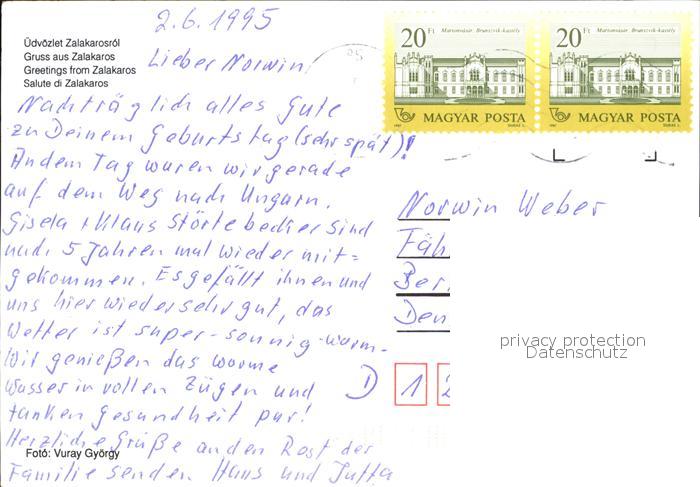 2.6.1995
Üdvözlet Zalakarosról
Gruss aus Zalakaros
Greetings from Zalakaros
Salute di Zalakaros
Lieber Norwin,
Nachträglich alles Gute
zu Deinem Geburtstag (sehr spät)!
An dem Tag waren wir gerade
auf dem Weg nach Ungarn.
Gisela + Klaus Störtebecker sind
nach 5 Jahren mal wieder mit=
gekommen. Es gefällt ihnen und
uns hier wieder sehr gut, das
Wetter ist super-sonnig-warm.
Wir genießen das warme
Wasser in vollen Zügen und
tanken Gesundheit pur!
Herzliche Grüße an den Rest der
Familie senden Hans und Jutta
Fotó: Vuray György
20 Ft
Martonvásár: Brunszvik-kastély
MAGYAR POSTA
20 Ft
Martonvásár: Brunszvik-kastély
MAGYAR POSTA
Norwin Weber
Fäh
Ber
Den
D 1 2
privacy protection
Datenschutz